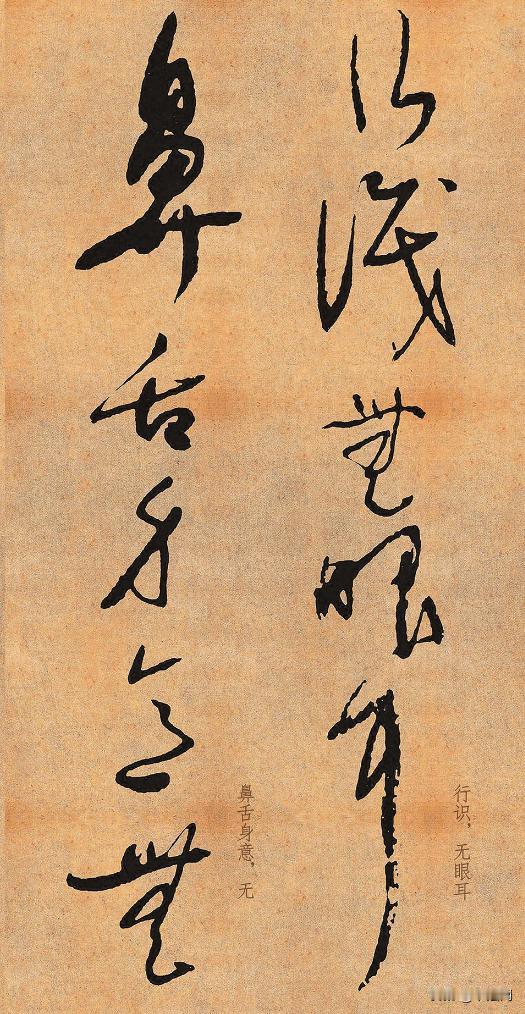 行識無眼耳
行识，无眼耳
鼻舌身意無
鼻舌身意，无